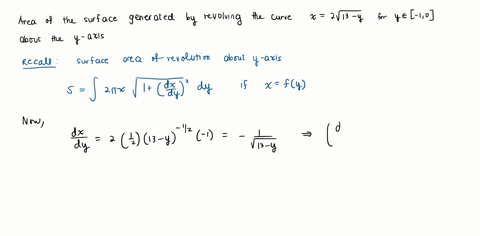 Area of the surface generated by revolving the curve x = 2√(13-y) for y ∈ [-1,0]
about the y-axis
Recall: surface area of revolution about y-axis
S = ∫ 2πx √(1 + (dx/dy)²) dy if x = f(y)
Now,
dx/dy = 2 (1/2) (13-y)^(-1/2) (-1) = - 1/√(13-y) ⇒ (d